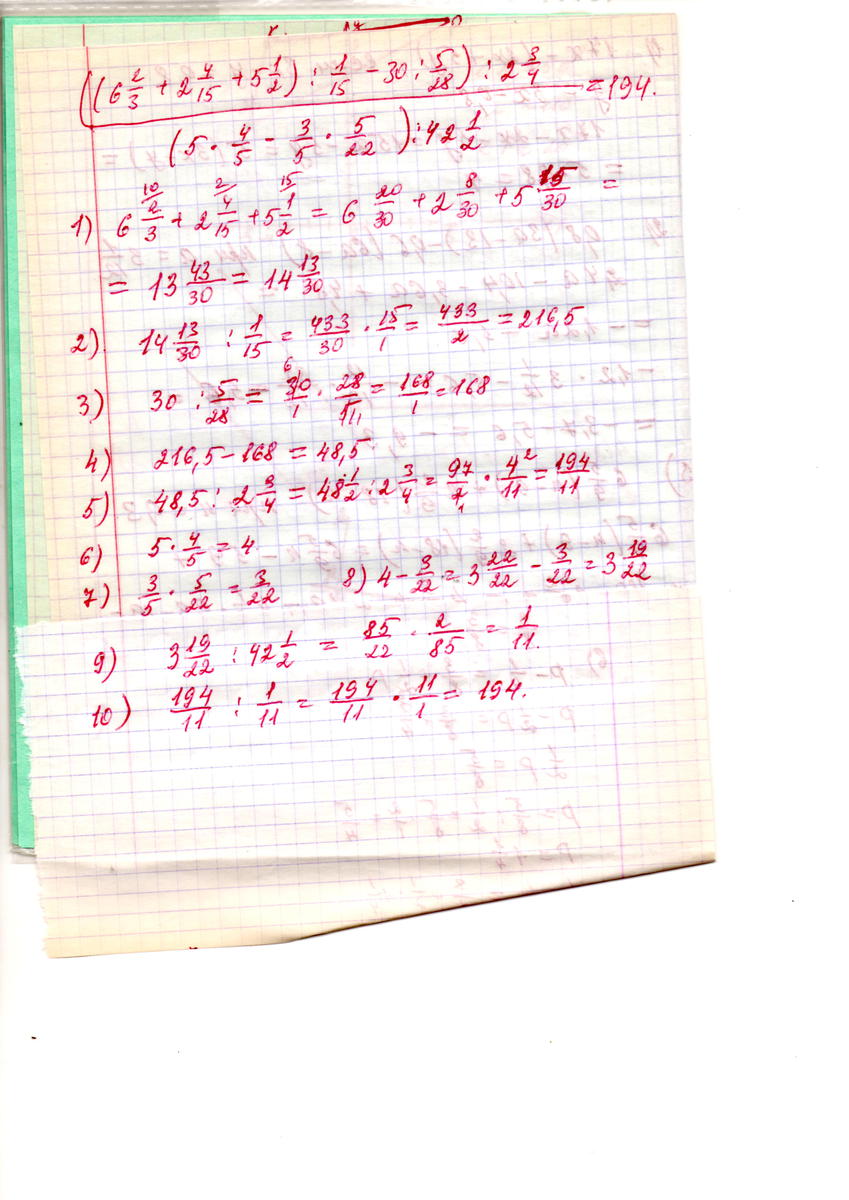 ((6 2/3 + 2 4/15 + 5 1/2) : 1/15 - 30 : 5/28) : 2 3/4
= 194.
(5 · 4/5 - 3/5 · 5/22) : 42 1/2
10/ 2/ 15/
1) 6 2/3 + 2 4/15 + 5 1/2 = 6 20/30 + 2 8/30 + 5 15/30 =
= 13 43/30 = 14 13/30
2) 14 13/30 : 1/15 = 433/30 · 15/1 = 433/2 = 216,5
3) 30 : 5/28 = 30/1 · 28/ = 168/1 = 168
4) 216,5 - 168 = 48,5
5) 48,5 : 2 3/4 = 48 1/2 : 2 3/4 = 97/2 · 4/11 = 194/11
6) 5 · 4/5 = 4
7) 3/5 · 5/22 = 3/22 8) 4 - 3/22 = 3 22/22 - 3/22 = 3 19/22
9) 3 19/22 : 42 1/2 = 85/22 · 2/85 = 1/11.
10) 194/11 : 1/11 = 194/11 · 11/1 = 194.